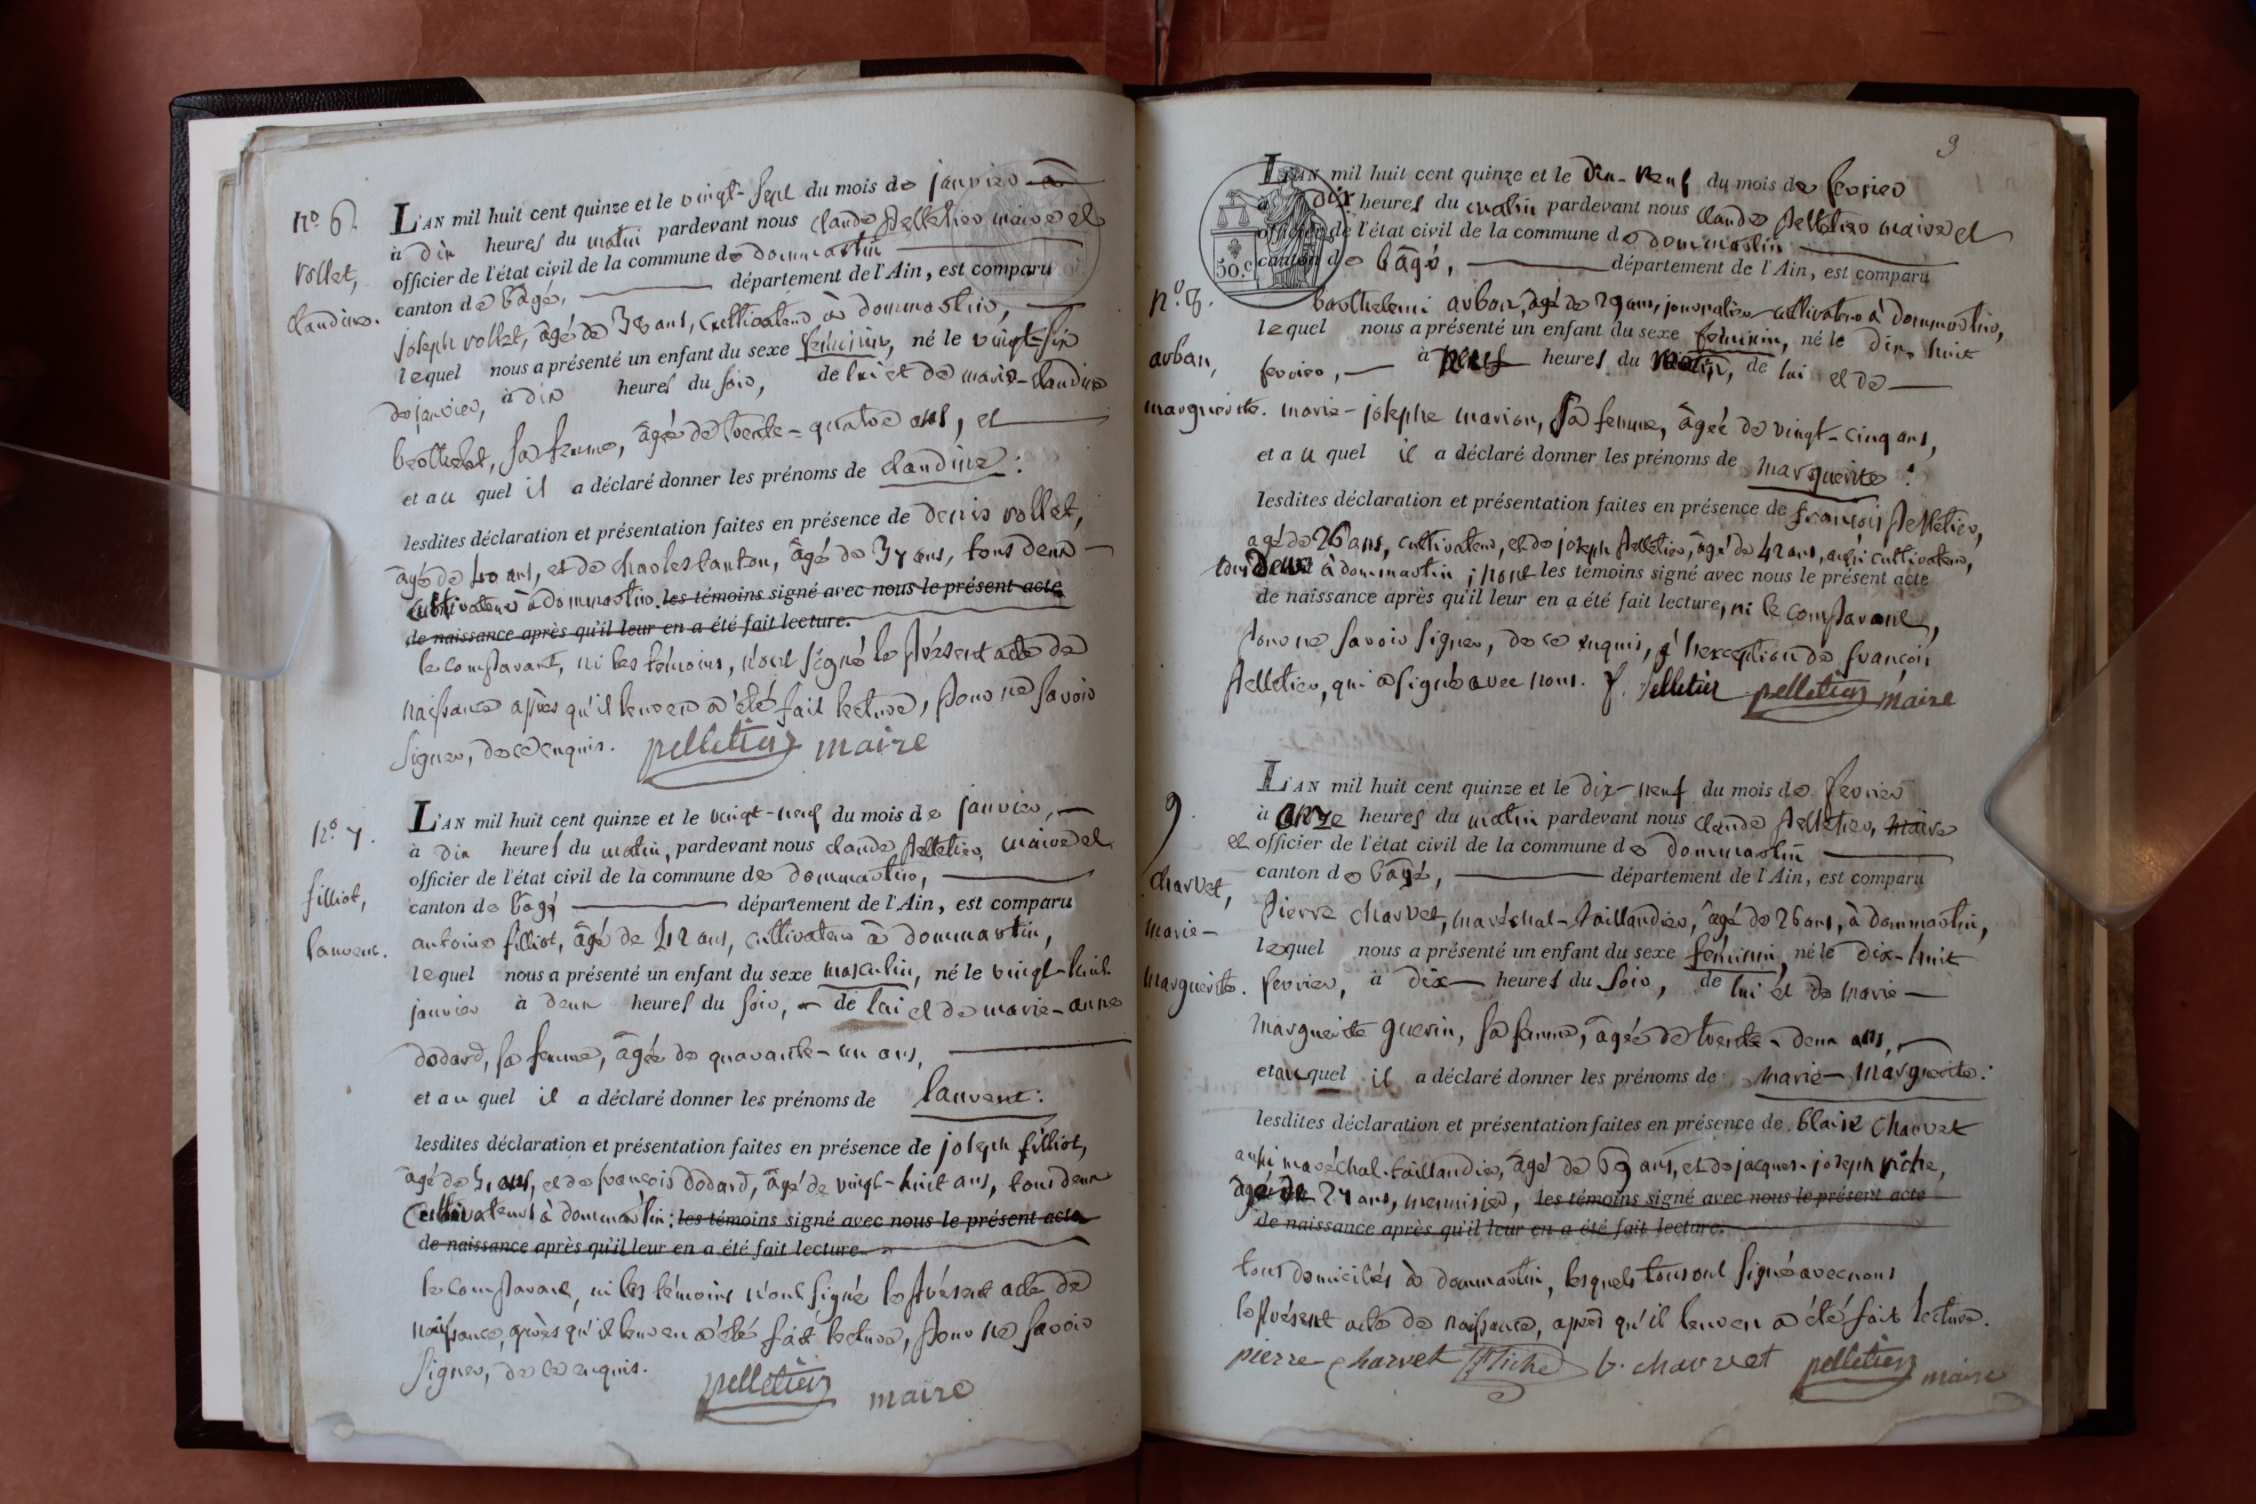 n.o 6.
vollet,
claudine.
L'AN mil huit cent quinze et le vingt-sept du mois de janvier à
à dix heures du matin pardevant nous claude pelletier maire et
officier de l'état civil de la commune de dommartin
canton de bâgé, département de l'Ain, est comparu
joseph vollet, âgé de 38 ans, cultivateur à dommartin,
lequel nous a présenté un enfant du sexe féminin, né le vingt-six
de janvier, à dix heures du soir, de lui et de marie-claudine
berthelet, sa femme, âgée de trente-quatre ans, et
et au quel il a déclaré donner les prénoms de claudine :
lesdites déclaration et présentation faites en présence de denis vollet,
âgé de 40 ans, et de charles tanton, âgé de 37 ans, tous deux
cultivateurs à dommartin. les témoins signé avec nous le présent acte
de naissance après qu'il leur en a été fait lecture.
le comparant, ni les témoins, n'ont signé le présent acte de
naissance après qu'il leur en a été fait lecture, pour ne savoir
signer, de ce enquis. pelletier maire
n.o 7.
filliot,
laurent.
L'AN mil huit cent quinze et le vingt-neuf du mois de janvier,
à dix heures du matin, pardevant nous claude pelletier, maire et
officier de l'état civil de la commune de dommartin,
canton de bâgé département de l'Ain, est comparu
antoine filliot, âgé de 42 ans, cultivateur à dommartin,
lequel nous a présenté un enfant du sexe masculin, né le vingt-huit
janvier à deux heures du soir, de lui et de marie-anne
dodard, sa femme, âgée de quarante-un ans,
et au quel il a déclaré donner les prénoms de laurent :
lesdites déclaration et présentation faites en présence de joseph filliot,
âgé de 51 ans, et de françois dodard, âgé de vingt-huit ans, tous deux
cultivateurs à dommartin ; les témoins signé avec nous le présent acte
de naissance après qu'il leur en a été fait lecture.
le comparant, ni les témoins n'ont signé le présent acte de
naissance, après qu'il leur en a été fait lecture, pour ne savoir
signer, de ce enquis.
pelletier maire
9
50.c
n.o 8.
arban,
marguerite.
L'AN mil huit cent quinze et le dix-neuf du mois de fevrier
à dix heures du matin pardevant nous claude pelletier maire et
officier de l'état civil de la commune de dommartin
canton de bâgé, département de l'Ain, est comparu
barthelemi arban, âgé de 29 ans, journalier cultivateur à dommartin,
lequel nous a présenté un enfant du sexe féminin, né le dix huit
fevrier, à neuf heures du matin, de lui et de
marie-josephe marion, sa femme, âgée de vingt-cinq ans,
et au quel il a déclaré donner les prénoms de marguerite :
lesdites déclaration et présentation faites en présence de françois pelletier,
âgé de 26 ans, cultivateur, et de joseph pelletier, âgé de 42 ans, aussi cultivateur,
tous deux à dommartin ; n'ont les témoins signé avec nous le présent acte
de naissance après qu'il leur en a été fait lecture, ni le comparant,
pour ne savoir signer, de ce enquis, à l'exception de françois
pelletier, qui a signé avec nous. f. pelletier pelletier maire
9.
charvet,
marie-
marguerite.
L'AN mil huit cent quinze et le dix-neuf du mois de fevrier
à onze heures du matin pardevant nous claude pelletier, maire
et officier de l'état civil de la commune de dommartin
canton de bâgé, département de l'Ain, est comparu
pierre charvet, maréchal-taillandier, âgé de 26 ans, à dommartin,
lequel nous a présenté un enfant du sexe féminin, né le dix-huit
fevrier, à dix heures du soir, de lui et de marie-
marguerite guerin, sa femme, âgée de trente-deux ans,
et au quel il a déclaré donner les prénoms de marie-marguerite :
lesdites déclaration et présentation faites en présence de blaise charvet
aussi maréchal-taillandier, âgé de 69 ans, et de jacques-joseph piche,
âgé de 27 ans, menuisier, les témoins signé avec nous le présent acte
de naissance après qu'il leur en a été fait lecture.
tous domiciliés à dommartin, lesquels tous ont signé avec nous
le présent acte de naissance, après qu'il leur en a été fait lecture.
pierre charvet piche b. charvet pelletier maire